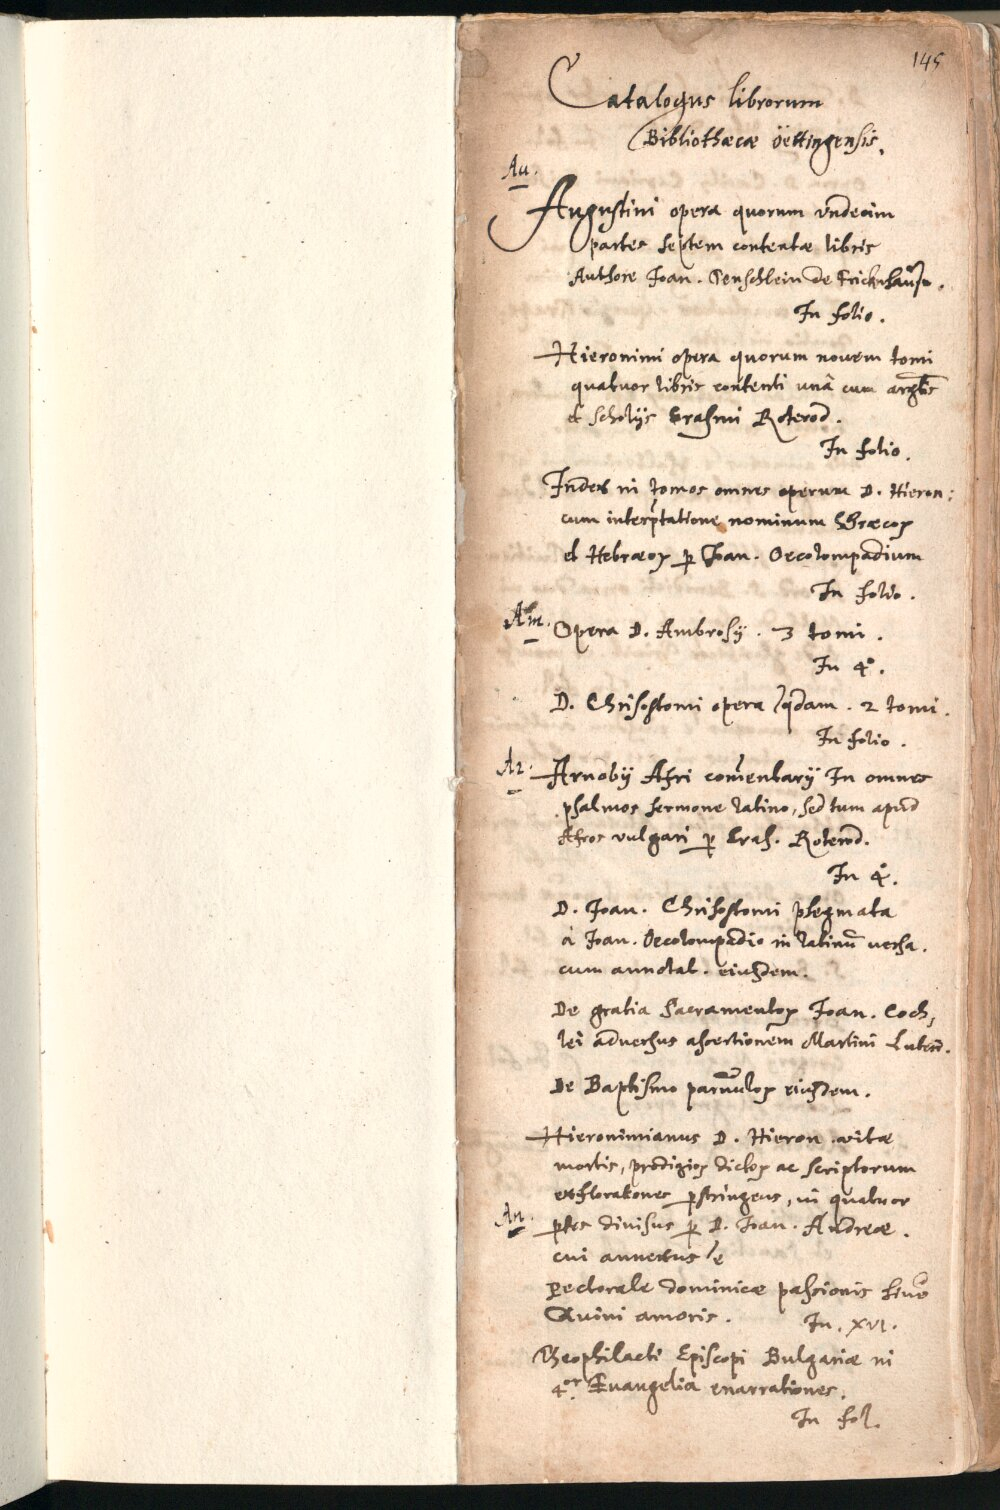 145
Catalogus librorum
Bibliothecæ Öettingensis.
Au.
Augustini opera quorum vndecim
partes septem contentæ libris
Authore Joan. de
In folio.
Hieronimi opera quorum novem tomi
quatuor libris contenti unâ cum
et scholijs Erasmi Roterod.
In folio.
Index in tomos omnes operum D. Hieron:
cum interp̃tatione nominum Græcoꝝ
et Hebræoꝝ ꝑ Joan. Oecolompadium
In folio.
Am.
Opera D. Ambrosij. 3 tomi.
In 4º.
D. Chrisostomi opera qdam. 2 tomi.
In folio.
Ar.
Arnobij Afri com̃entarij In omnes
psalmos sermone latino, sed tum apud
Afros vulgari ꝑ Eras. Roterod.
In 4º.
D. Joan. Chrisostomi psegmata
à Joan. Oecolompadio in latinũ versa.
cum annotat. eiusdem.
De gratia Sacramentoꝝ Joan. Coch,
lei adversus assertionem Martini Luther̃.
De Baptismo parvuloꝝ eiusdem.
Hieronimianus D. Hieron. vitæ
mortis, prodigioꝝ dictoꝝ ac scriptorum
exflorationes ꝑstringens, in quatuor
An.
ptes divisus ꝑ D. Joan. Andreæ.
cui annexus e
Pectorale dominicæ passionis sive
divini amoris.
In. XVI.
Theophilacti Episcopi Bulgariæ in
4or Euangelia enarrationes.
In fol.